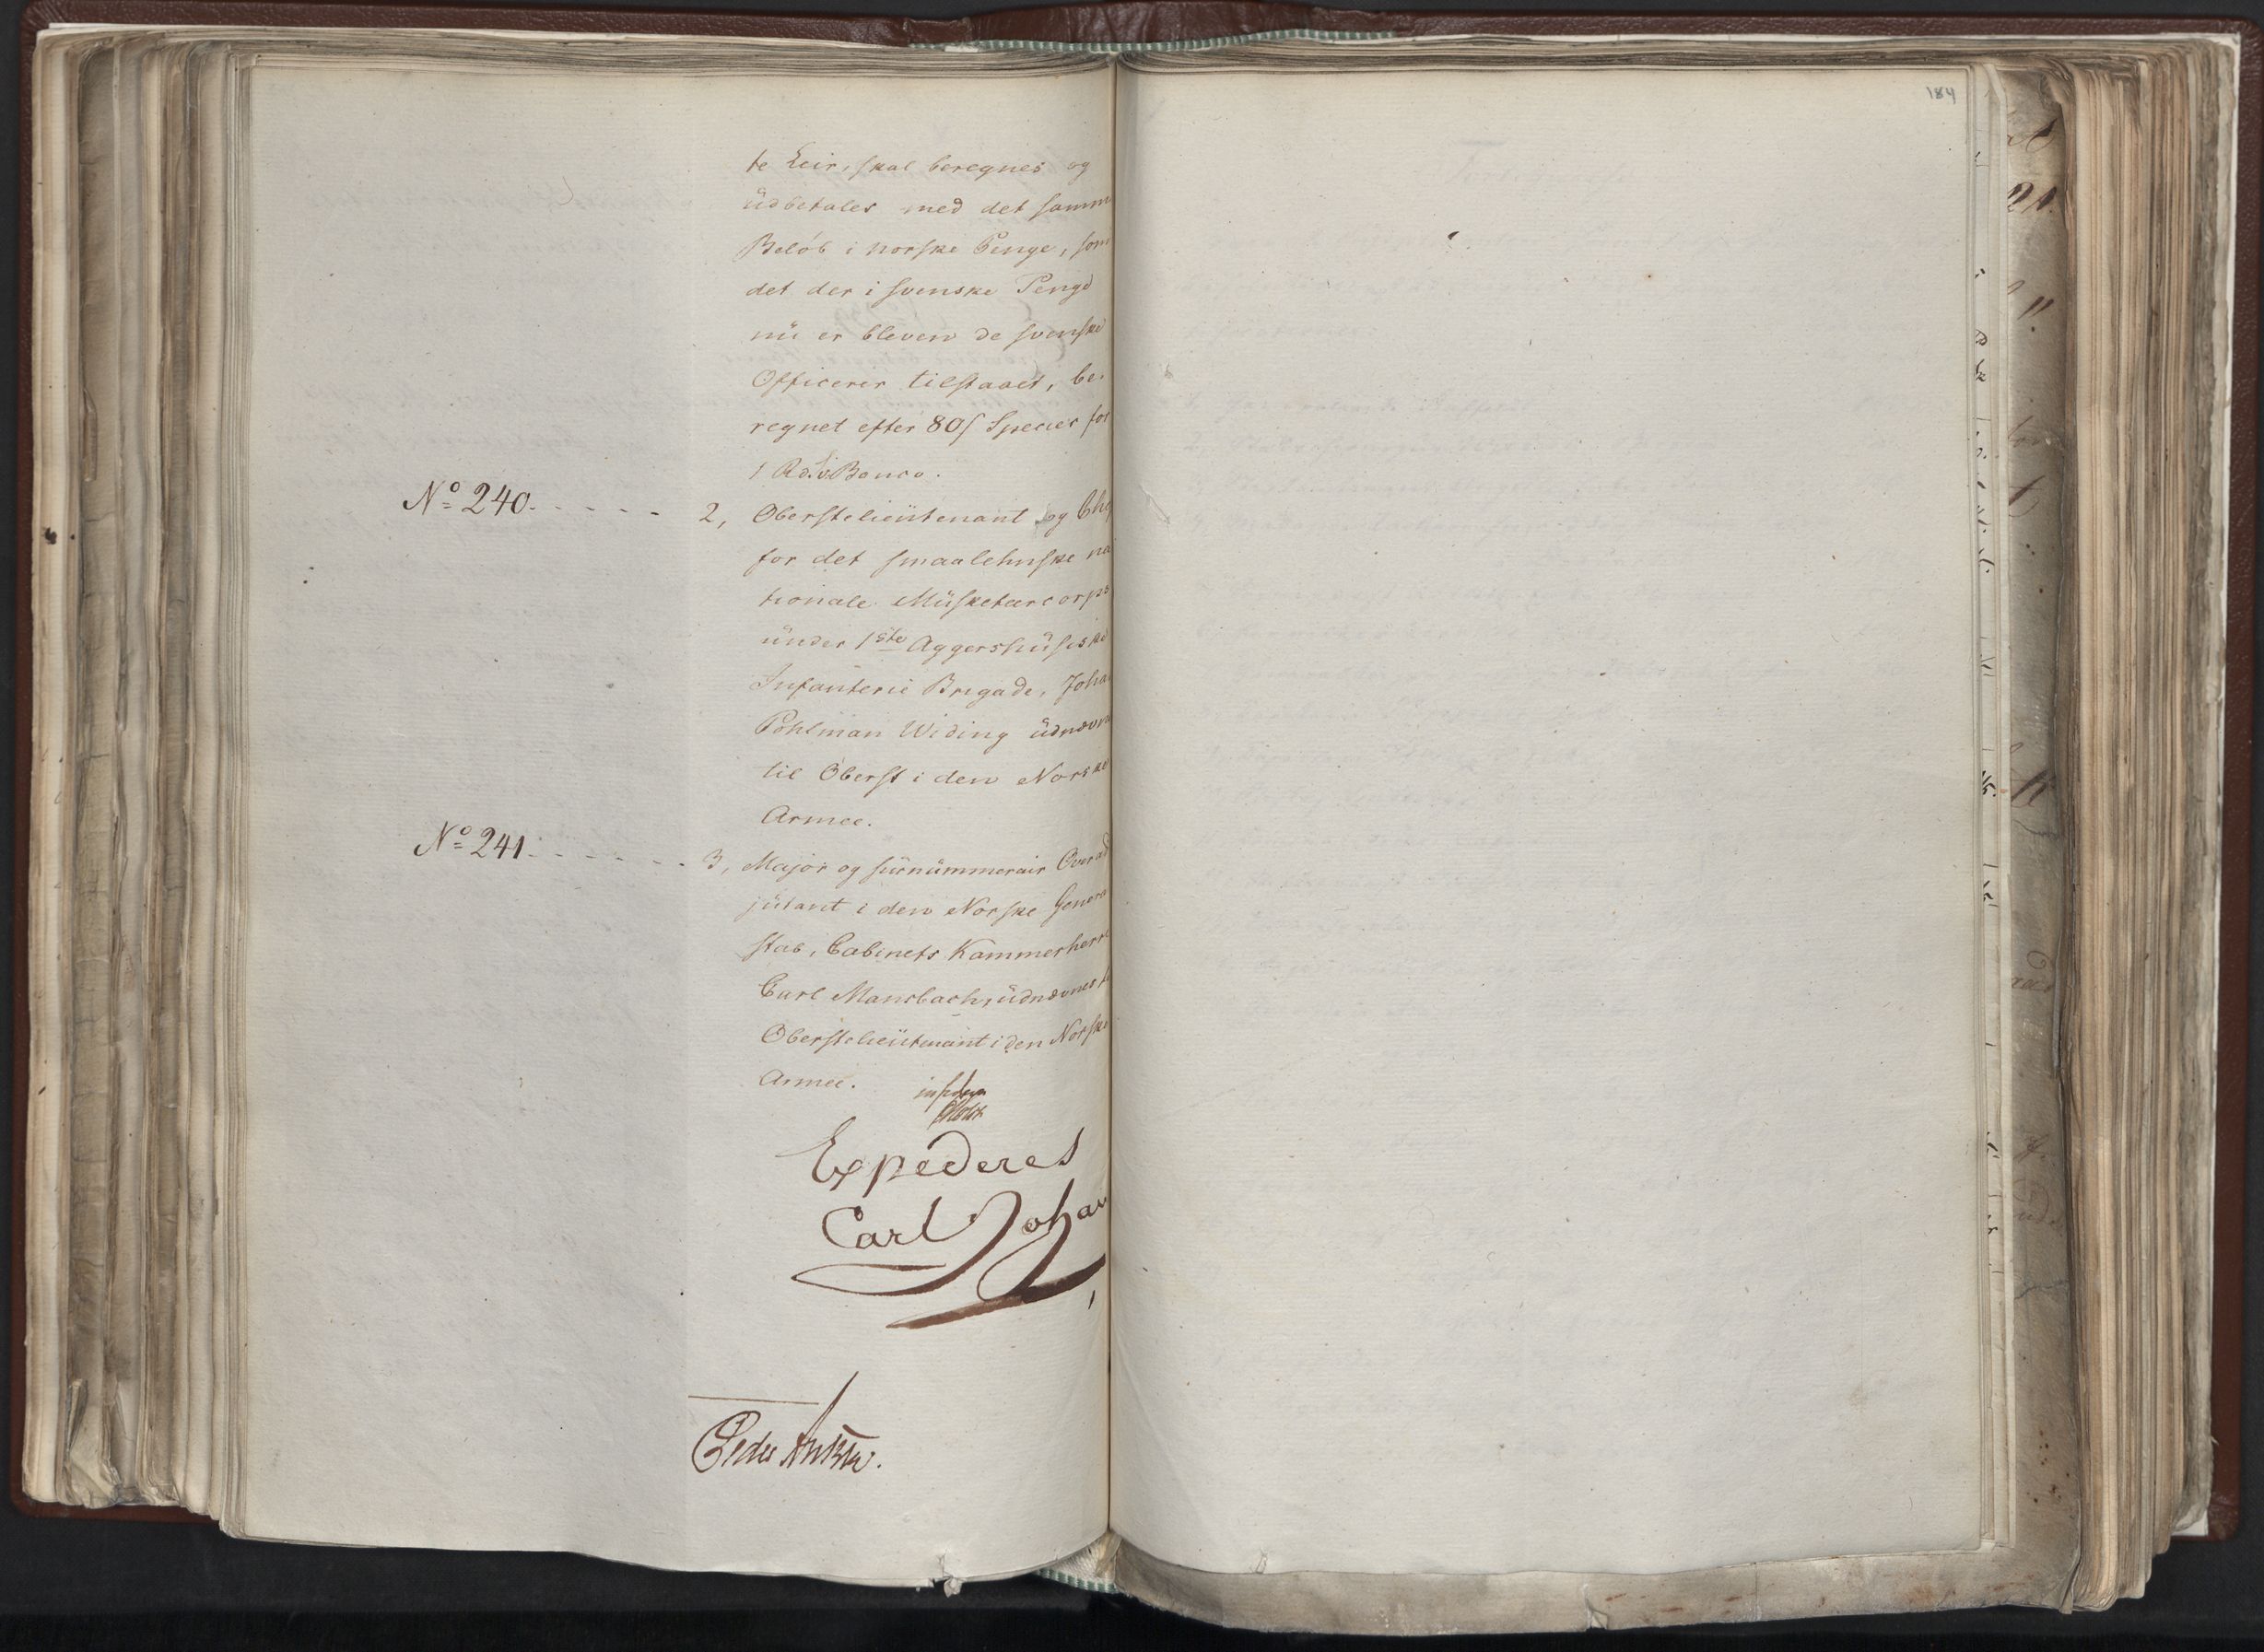 184
te Leir, skal beregnes og
üdbetales med det samm
Beløb i norske Penge, som
det der i svenske Penge
nü er bleven de svenske
Officerer tilstaaet, be-
regnet efter 80 s Species for
1 Rd. Banco.
No 240. - - - - - 2, Oberstelieütenant og Chef
for det smaalehnske na
tionale Müsketeercorps
ünder 1ste Aggershüsiske
Infanterie Brigade, Joha
Pohlman Widing üdnævn
til Oberst i den Norske
Armee.
No 241. - - - - - 3, Major og sürnümmerair Overad
jütant i den Norske Genera
stab, Cabinets Kammerherre
Carl Mansbach, üdnævnes
Oberstelieütenant i den Norske
Armee.
Expederes
Carl Johan
Peder Anker.